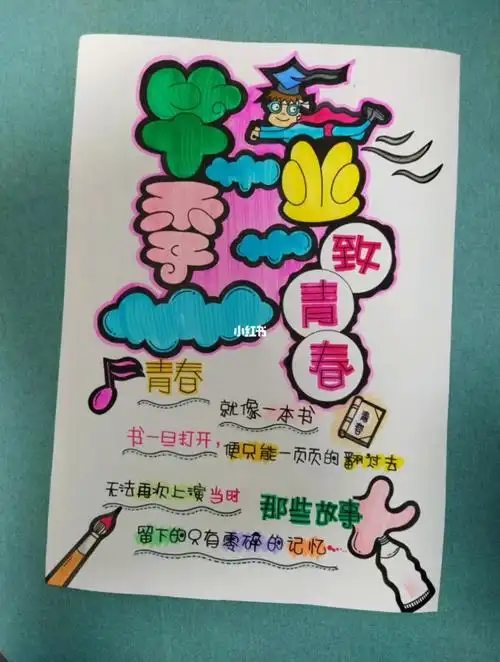 毕业季
致青春
小红书
青春
就像一本书
青春
书一旦打开，便只能一页页的翻过去
无法再次上演当时那些故事
留下的只有零碎的记忆...